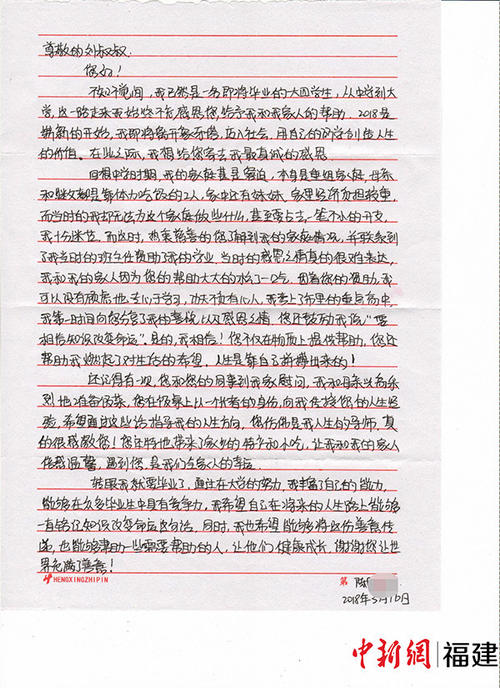 尊敬的刘叔叔:
您好!
不知不觉间,我已然是一名即将毕业的大四学生,从中学到大
学,这一路走来我始终不忘感恩您给予我和我家人的帮助。2018是
崭新的开始,我即将离开象牙塔,迈入社会,用自己的所学创造人生
的价值。在此之际,我想给您寄去我最真诚的感恩。
回想中学时期,我的家庭甚是窘迫,本身是重组家庭,母亲
和继父都是靠体力吃饭的工人,家中还有妹妹,家里经济负担较重,
而当时的我却无法为这个家庭做些什么,甚至要占去一笔不小的开支,
我十分迷茫。而这时,热衷慈善的您了解到我的家庭情况,并联系到
了我当时的班主任资助了我的学业,当时的感恩之情真的很难表达,
我和我的家人因为您的帮助大大的松了一口气。因着您的资助,我
可以没有顾虑地专心于学习,功夫不负有心人,我考上了市里的重点高中,
我第一时间向您分享了我的喜悦以及感恩之情,您还鼓励我说“要
相信知识改变命运”,是的,我相信!您不仅在物质上提供帮助,您还
帮助我燃起了对生活的希望,人生是靠自己拼搏出来的!
还记得有一次,您和您的同事到我家慰问,我和母亲以家乐
到地准备饭菜,您在饭桌上以一个长者的身份,向我传授您的人生经
验,希望通过这些话指导我的人生方向,您仿佛是我人生的导师,真
的很感激您!您还特地带来了家乡的特产和小吃,让我和我的家人
倍感温馨,遇到您,是我们全家人的幸运。
转眼我就要毕业了,通过在大学的努力,我丰富了自己的能力,
能够在众多毕业生中具有竞争力,我希望自己在将来的人生路上能够
一直铭记知识改变命运这句话。同时,我也希望能够将这份善意传
递,也能够帮助一些需要帮助的人,让他们健康成长,谢谢您让世
界充满了善意!
HENGXINGZHIPIN
第
陈
2018年5月10日
中新網 福建